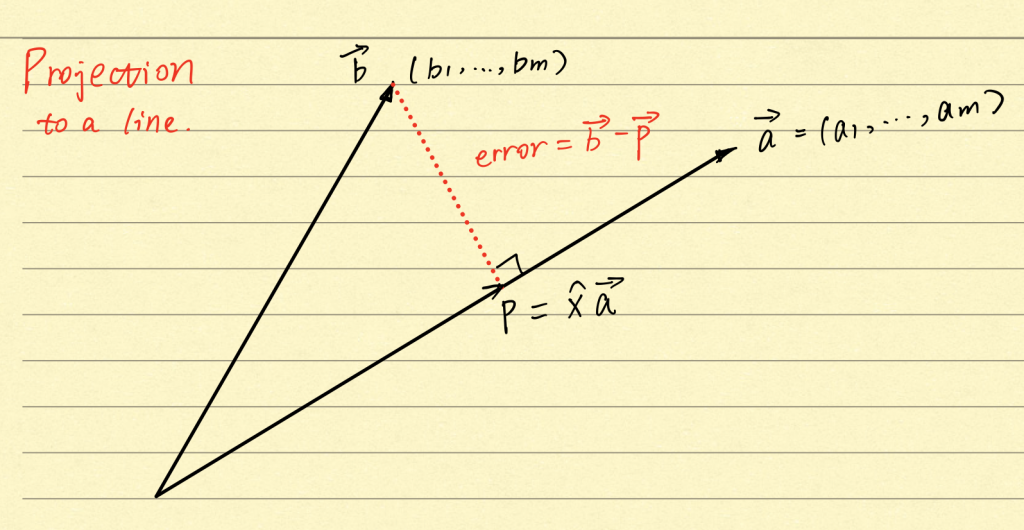 Projection
to a line.
b⃗ (b₁, ..., bₘ)
error = b⃗ - p⃗
a⃗ = (a₁, ..., aₘ)
p = x̂ a⃗